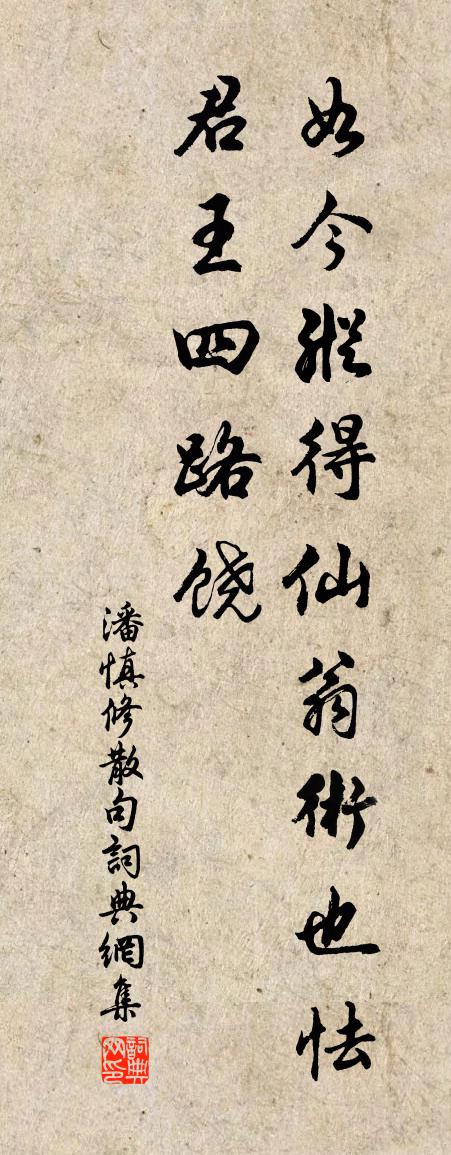 如今縱得仙翁術也怯
君王四路饒
潘慎修散句詞典網集
詞典网印